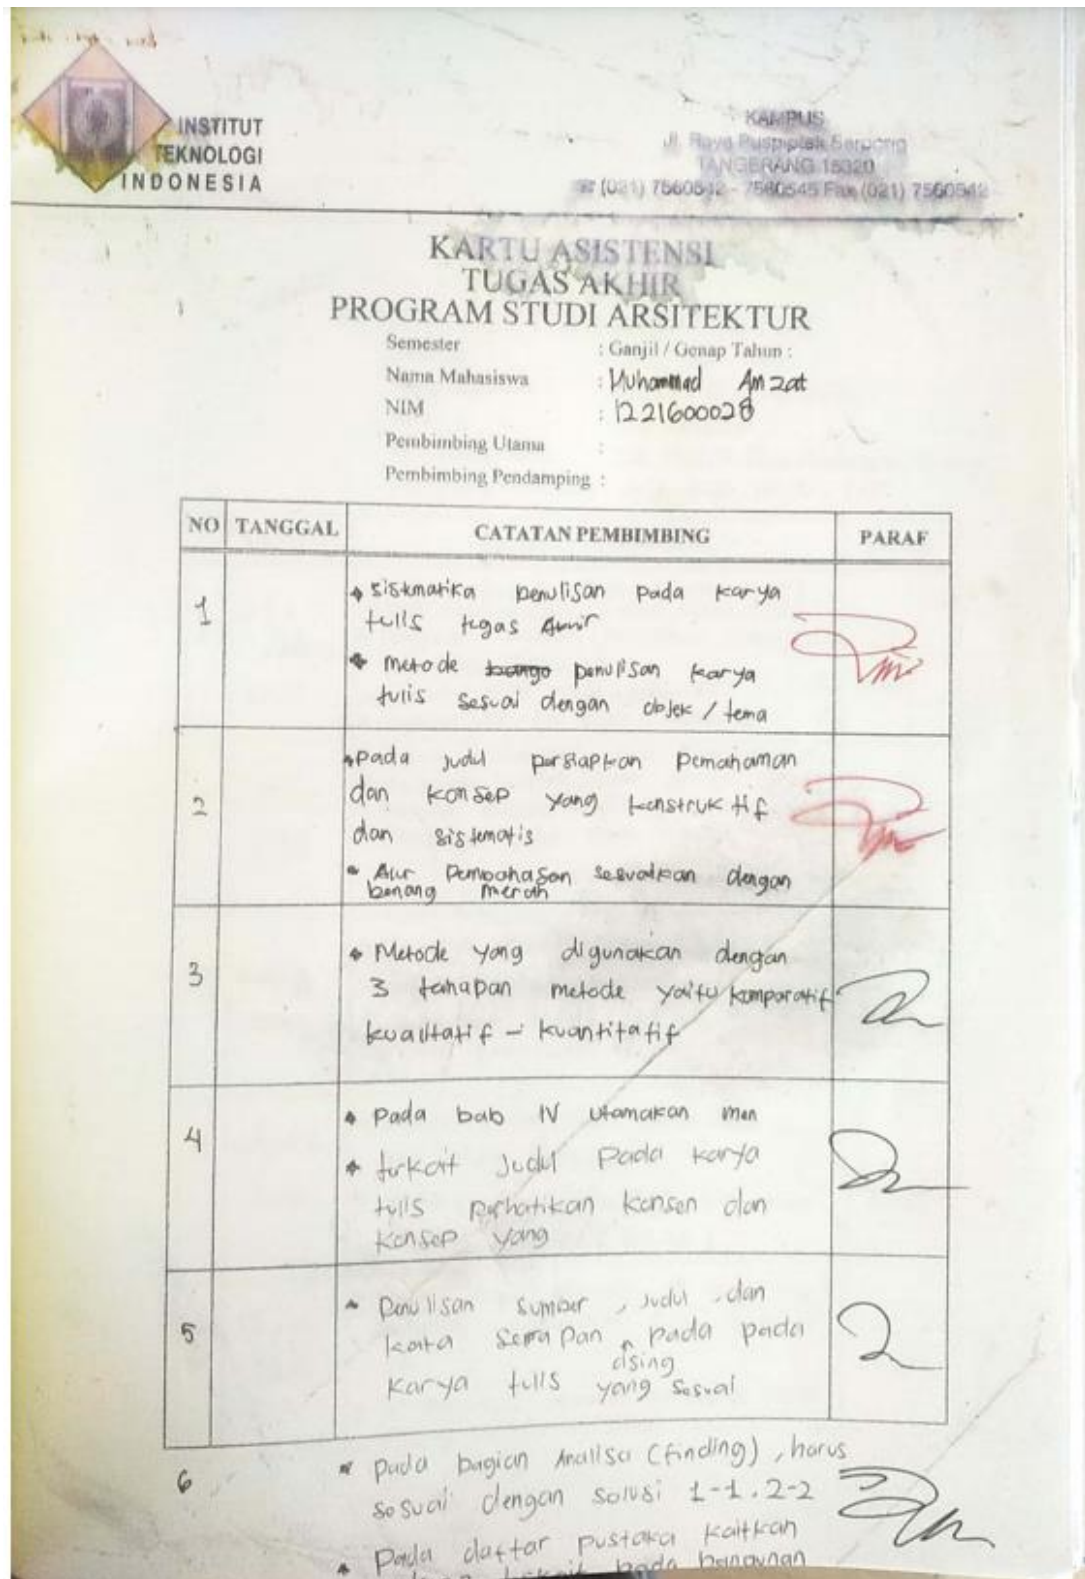 INSTITUT
TEKNOLOGI
INDONESIA
KAMPUS
Jl. Raya Puspiptek Serpong
TANGERANG 15320
☎ (021) 7560542 - 7560545 Fax (021) 7560542
KARTU ASISTENSI
TUGAS AKHIR
PROGRAM STUDI ARSITEKTUR
Semester : Ganjil / Genap Tahun :
Nama Mahasiswa : Muhammad Amzat
NIM : 1221600028
Pembimbing Utama :
Pembimbing Pendamping :
NO TANGGAL CATATAN PEMBIMBING PARAF
1
sistematika penulisan pada karya
tulis tugas Akhir
metode penulisan karya
tulis sesuai dengan objek / tema
2
pada judul persiapkan pemahaman
dan konsep yang konstruktif
dan sistematis
Alur Pembahasan sesuaikan dengan
benang merah
3
Metode yang digunakan dengan
3 tahapan metode yaitu komparatif
kualitatif - kuantitatif
4
pada bab IV utamakan men
terkait judul pada karya
tulis perhatikan konsen dan
konsep yang
5
Penulisan sumber, judul, dan
kata serapan asing pada pada
karya tulis yang sesuai
6
pada bagian Analisa (finding), harus
sesuai dengan solusi 1-1. 2-2
Pada daftar pustaka kaitkan
pada bangunan